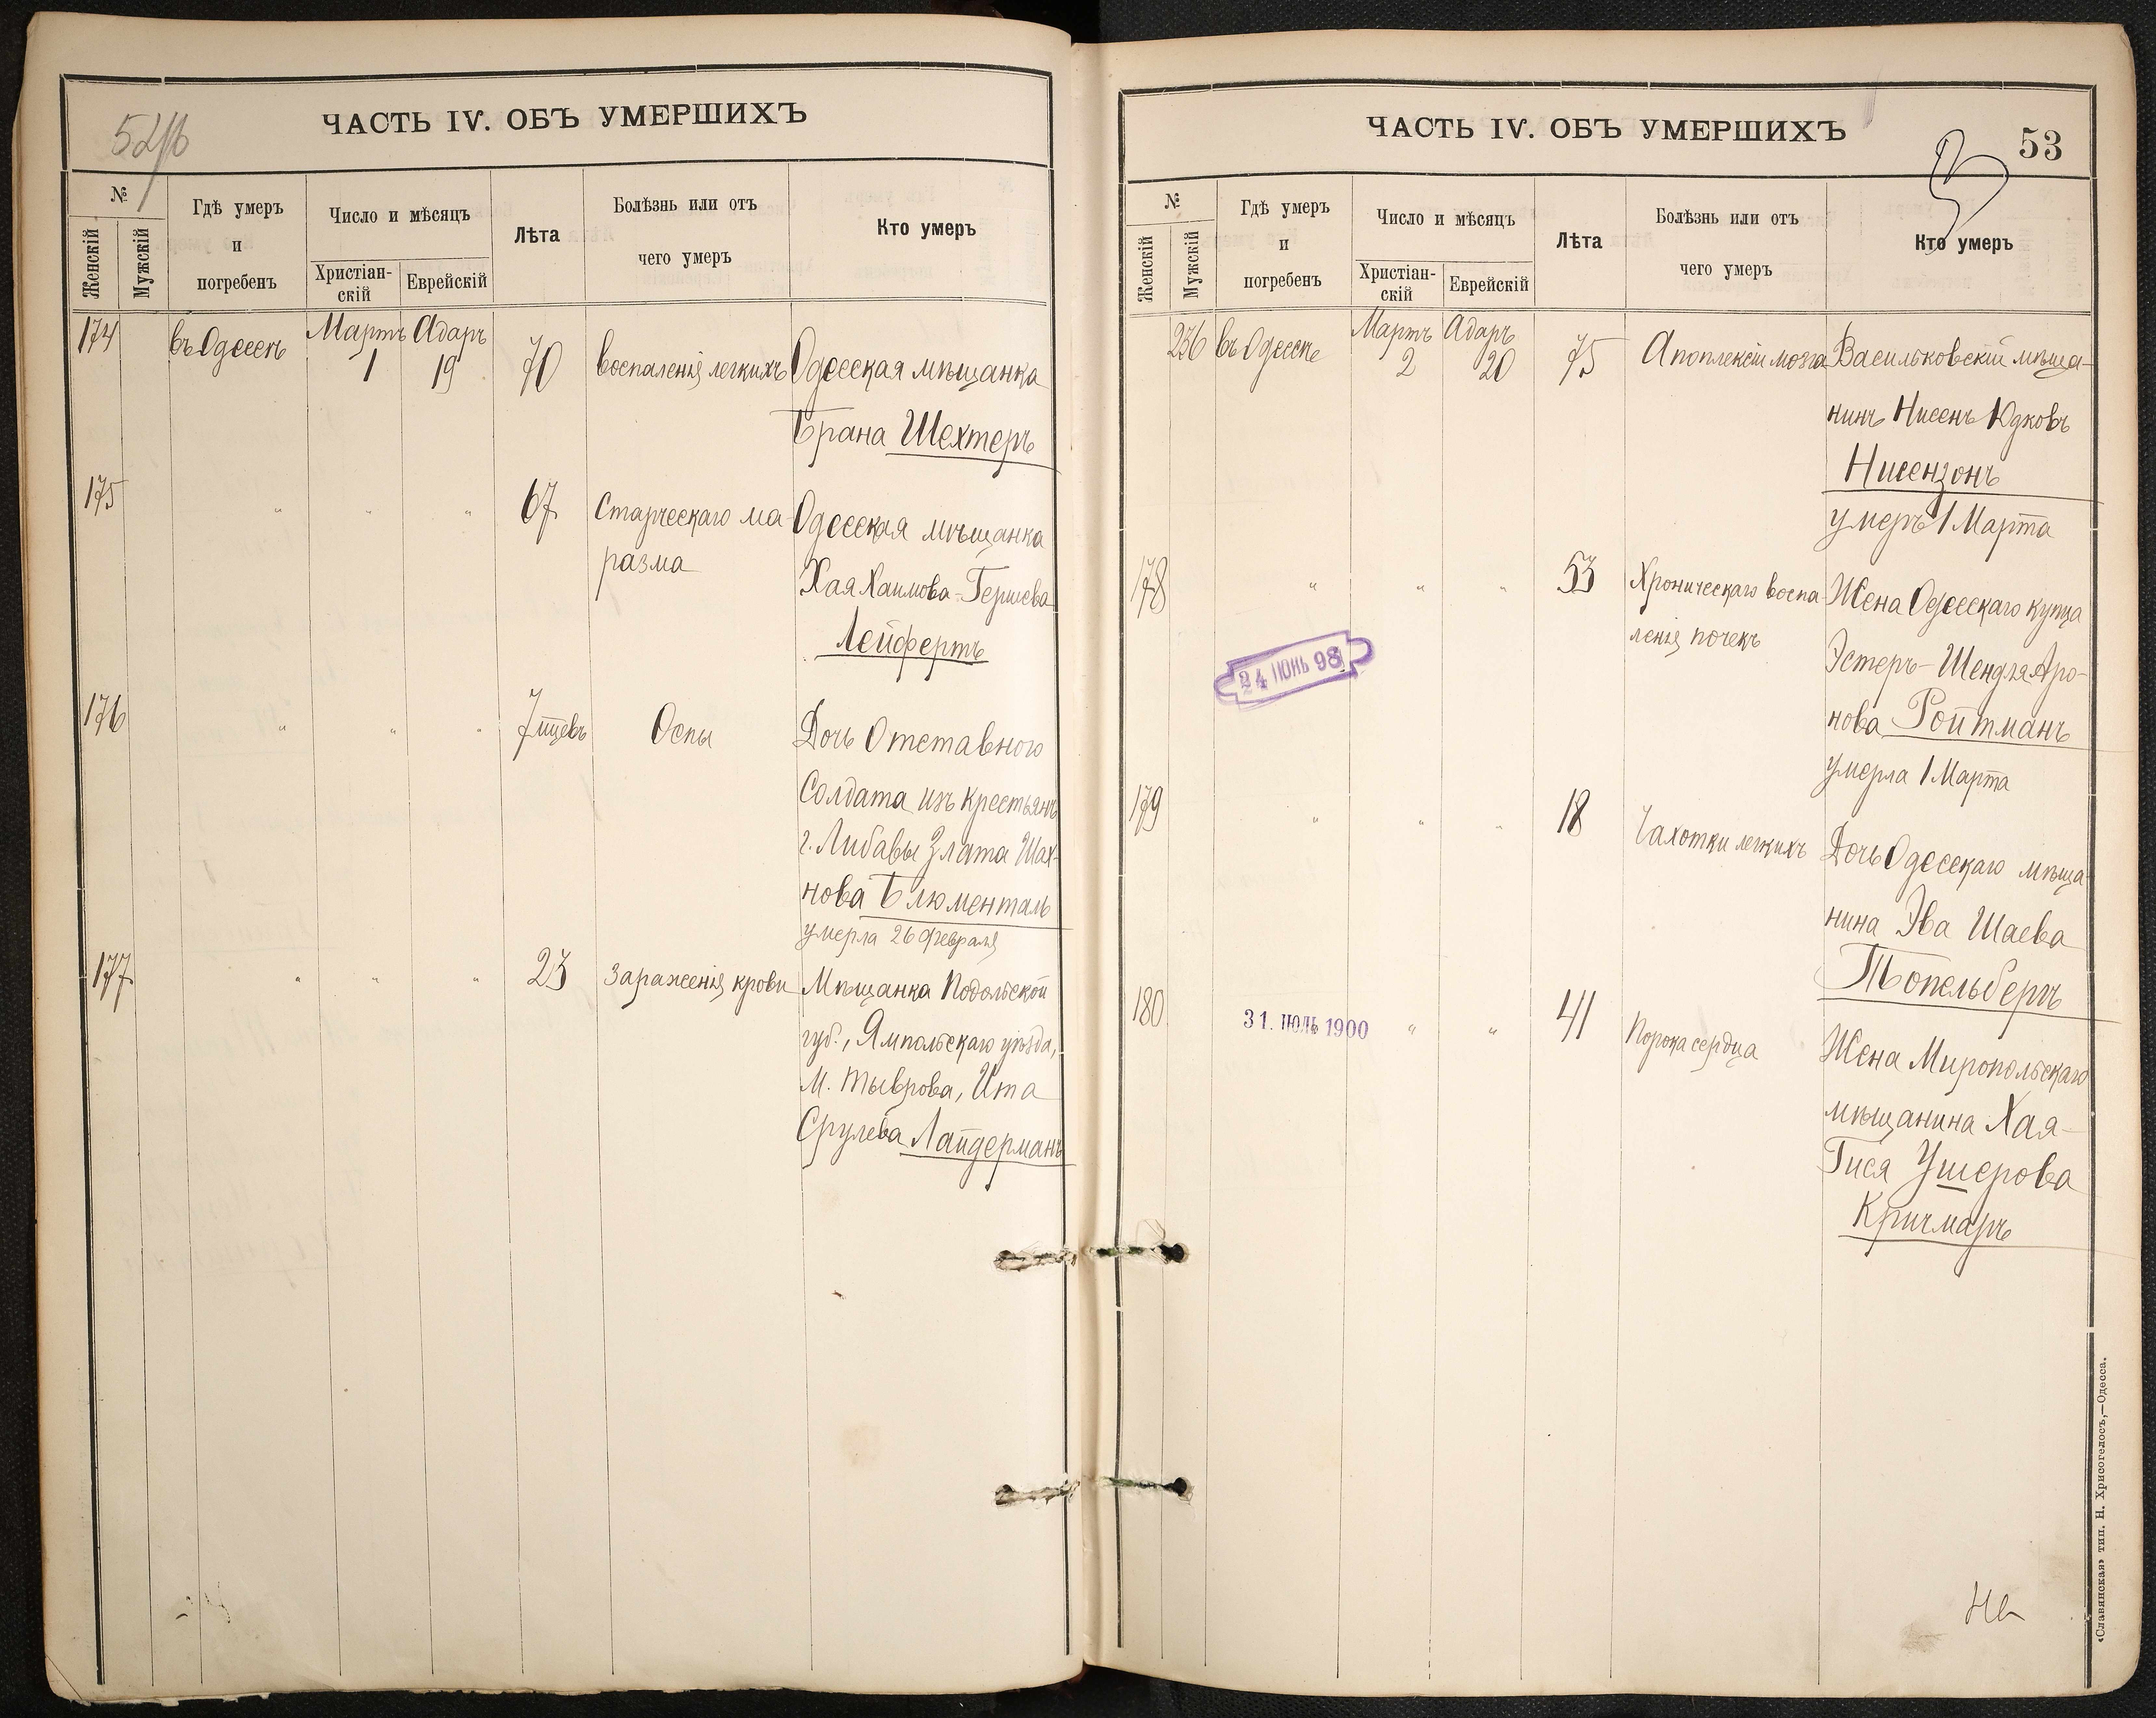 52/б
ЧАСТЬ IV. ОБЪ УМЕРШИХЪ
№
Женскій
Мужскій
Гдѣ умеръ
и
погребенъ
Число и мѣсяцъ
Христіан-
скій
Еврейскій
Лѣта
Болѣзнь или отъ
чего умеръ
Кто умеръ
174 въ Одессѣ Мартъ Адаръ
1 19 70 воспаленія легкихъ Одесская мѣщанка
Брана Шехтеръ
175 " " " 67 Старческаго ма- Одесская мѣщанка
разма Хая Хаимова-Гершева
Лейфертъ
176 " " " 7 мцевъ Оспы Дочь Отставного
Солдата изъ крестьянъ
г. Либавы Злата Шах-
нова Блюменталь
умерла 26 февраля
177 " " " 23 Зараженія крови Мѣщанка Подольской
губ., Ямпольскаго уѣзда,
м. Тыврова, Ита
Срулева Лайдерманъ
ЧАСТЬ IV. ОБЪ УМЕРШИХЪ
53
№
Женскій
Мужскій
Гдѣ умеръ
и
погребенъ
Число и мѣсяцъ
Христіан-
скій
Еврейскій
Лѣта
Болѣзнь или отъ
чего умеръ
Кто умеръ
236 въ Одессѣ Мартъ Адаръ
2 20 75 Апоплексіи мозга Васильковскій мѣща-
нинъ Нисенъ Юдковъ
Нисензонъ
умеръ 1 Марта
178 " " " 53 Хроническаго воспа- Жена Одесскаго купца
ленія почекъ Эстеръ-Шендля Аро-
24 ІЮНЬ 98
нова Ройтманъ
умерла 1 Марта
179 " " " 18 Чахотки легкихъ Дочь Одесскаго мѣща-
нина Эва Шаева
Топельбергъ
180 31. ІЮЛЬ 1900 " " 41 Порока сердца Жена Миропольскаго
мѣщанина Хая-
Гися Ушерова
Кричмаръ
«Славянская» тип. Н. Хрисогелосъ,—Одесса.